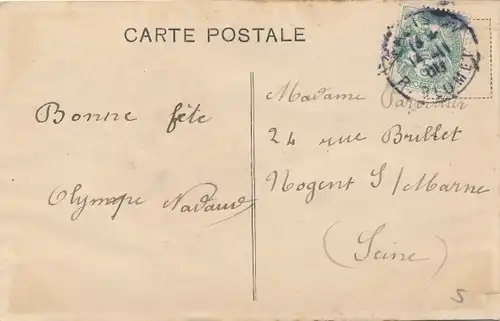 CARTE POSTALE
Bonne fête
Olympe Nadaud
Madame
24 rue Brillet
Nogent S/Marne
(Seine)
R. PLUMET
5